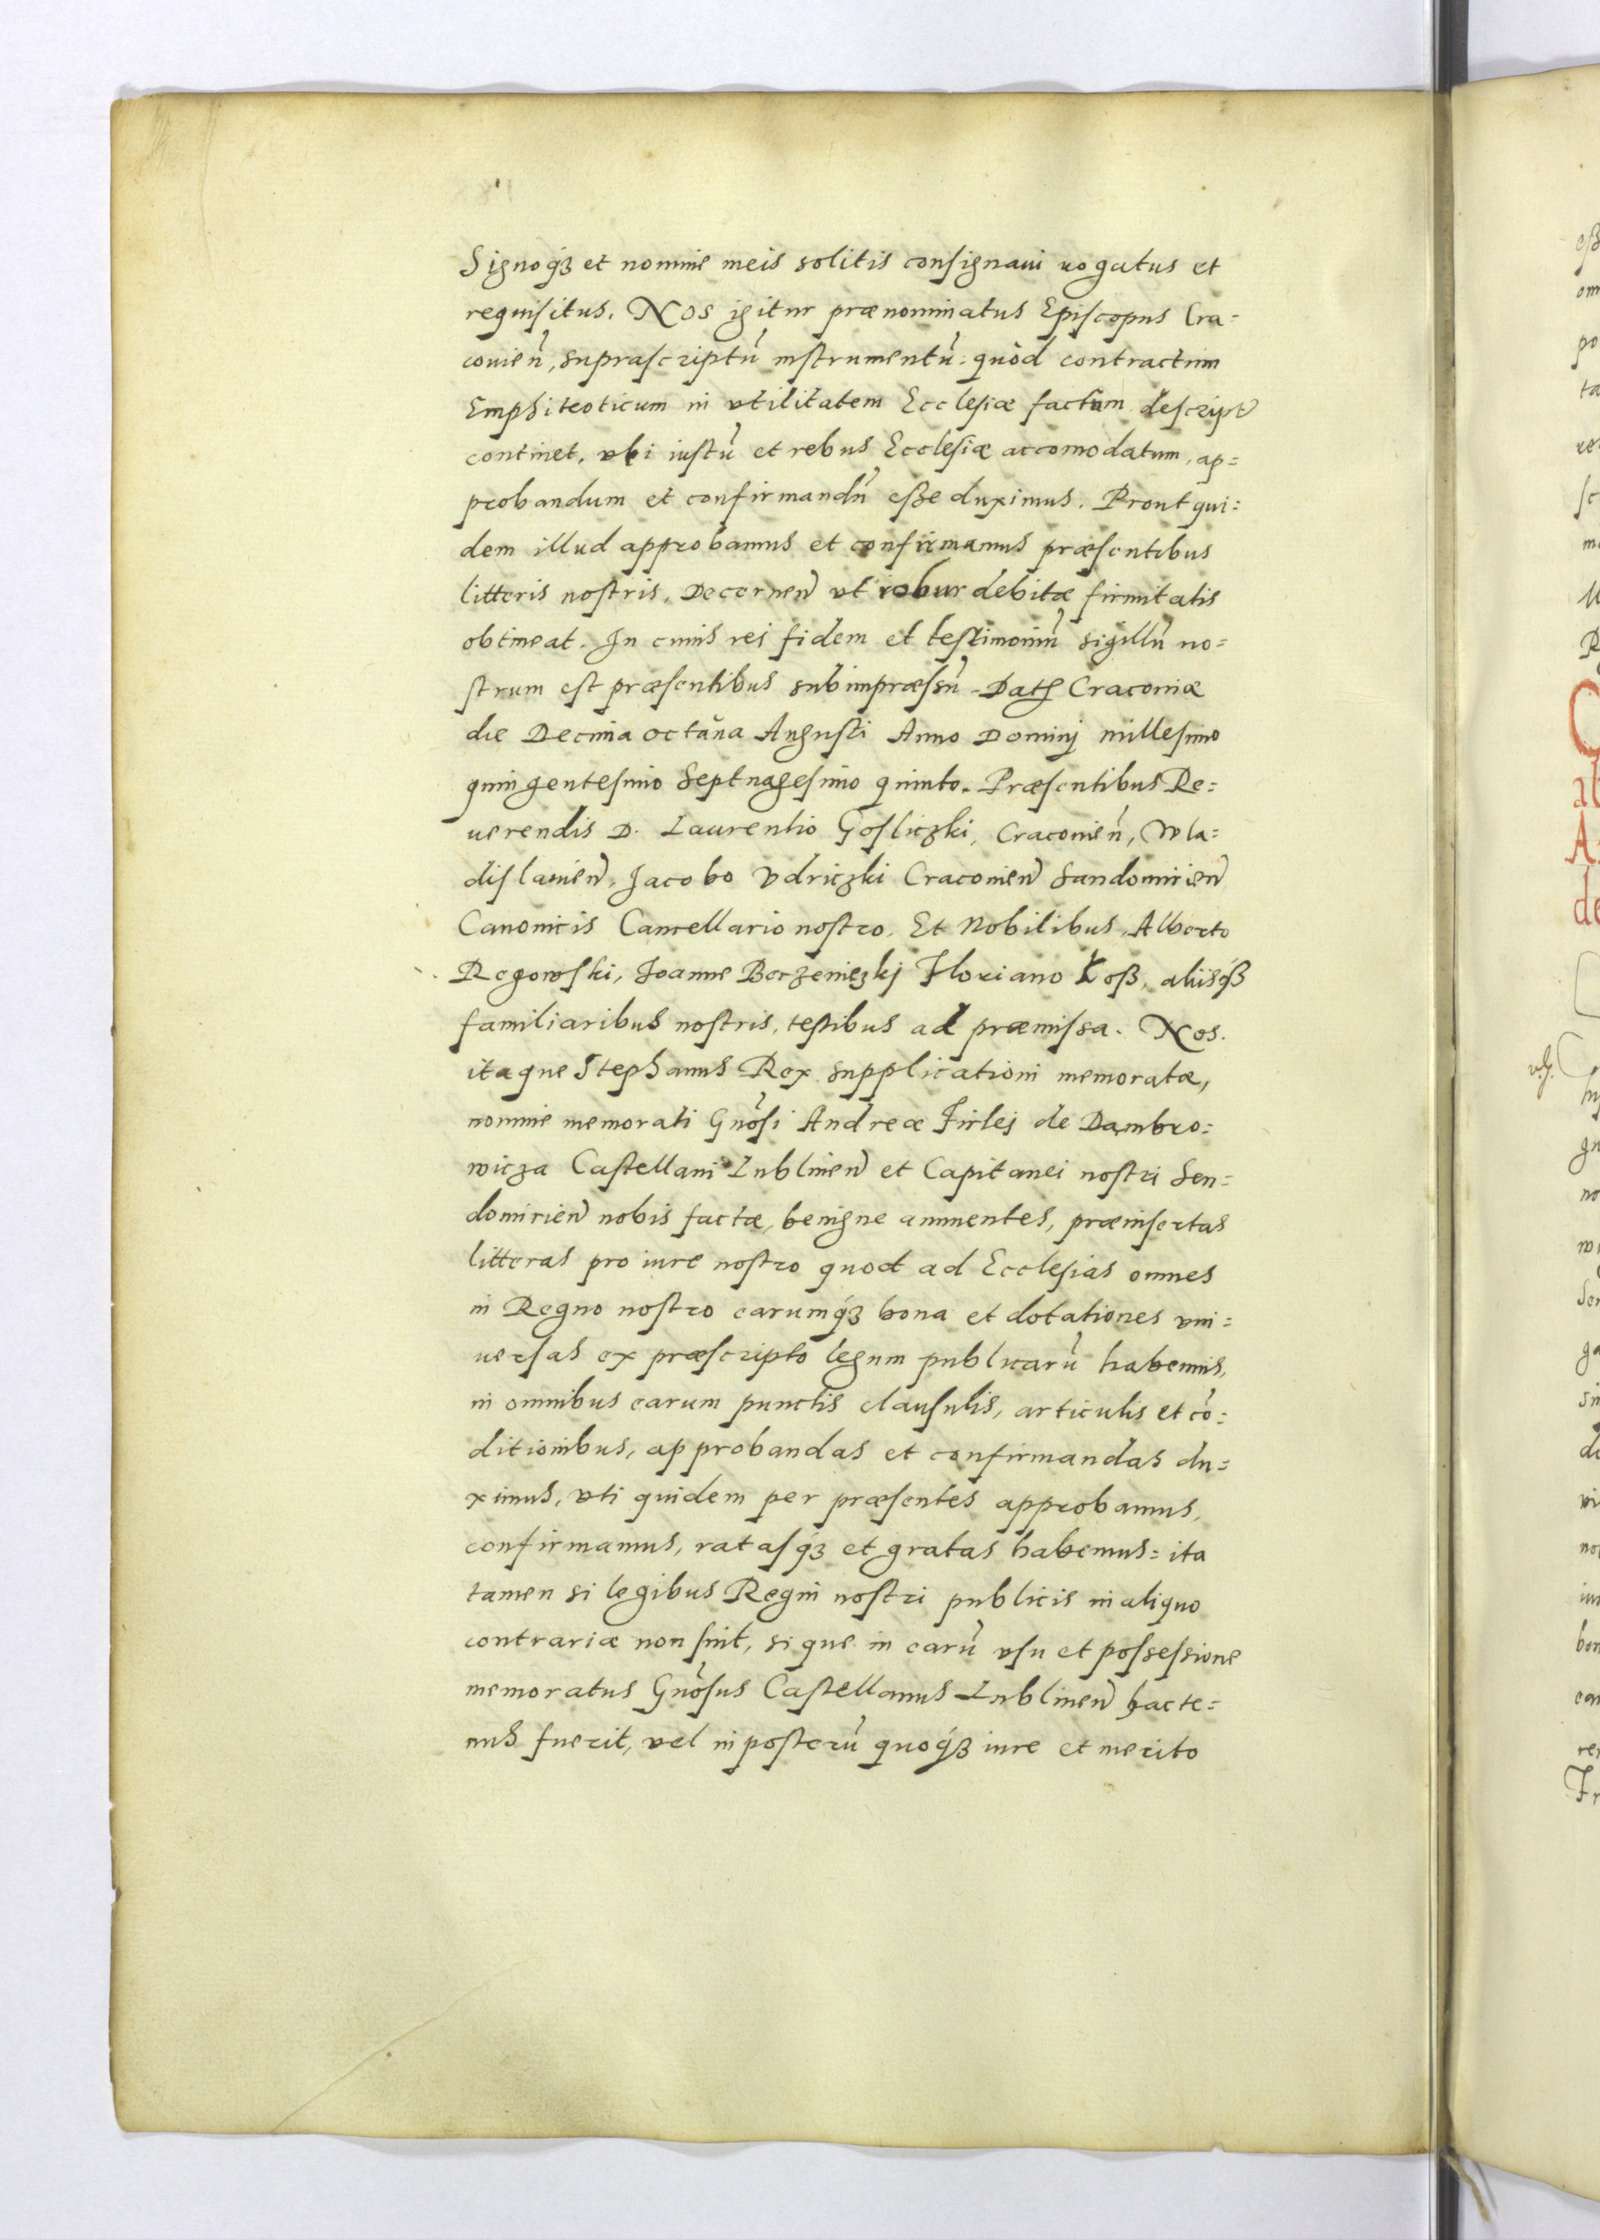 Signoq́ꝫ et nomine meis solitis consignaui rogatus et
requisitus. Nos igitur prænominatus Episcopus Cra=
couień, suprascriptū instrumentū: quòd contractum
Emphiteoticum in vtilitatem Ecclesiæ factum descript
continet, vti iustū et rebus Ecclesiæ accomodatum, ap=
probandum et confirmandū eße duximus. Prout qui=
dem illud approbamus et confirmamus præsentibus
litteris nostris, Decerneń vt robur debitæ firmitatis
obtineat. In cuius rei fidem et testimoniū sigillū no=
strum est præsentibus subimpræssū. Dat Cracouiæ
die Decima octaua Augusti Anno Dominj millesimo
quingentesimo Septuagesimo quinto. Præsentibus Re=
uerendis D. Laurentio Gosliczki, Cracouień, Wla=
dislauień, Jacobo Vdriczki Cracouień Sandomirień
Canonicis Cancellario nostro. Et Nobilibus, Alberto
Regowski, Joanne Berzeniczkj Floriano Łoß, aliisq́ꝫ
familiaribus nostris, testibus ad præmissa. Nos.
itaque Stephanus Rex supplicationi memoratæ,
nomine memorati Gnōsi Andreæ Firlej de Dambro=
wicza Castellani Lublineń et Capitanei nostri Sen=
domirień nobis factæ, benigne annuentes, præinsertas
litteras pro iure nostro quod ad Ecclesias omnes
in Regno nostro earumq́ꝫ bona et dotationes vni=
uersas ex præscripto legum publicarū habemus,
in omnibus earum punctis clausulis, articulis et cō=
ditionibus, approbandas et confirmandas du=
ximus, vti quidem per præsentes approbamus,
confirmamus, ratasq́ꝫ et gratas habemus: ita
tamen si legibus Regni nostri publicis in aliquo
contrariæ non sint, sique in earū vsu et possessione
memoratus Gnōsus Castellanus Lublineń hacte=
nus fuerit, vel in posterū quoq́ꝫ iure et merito